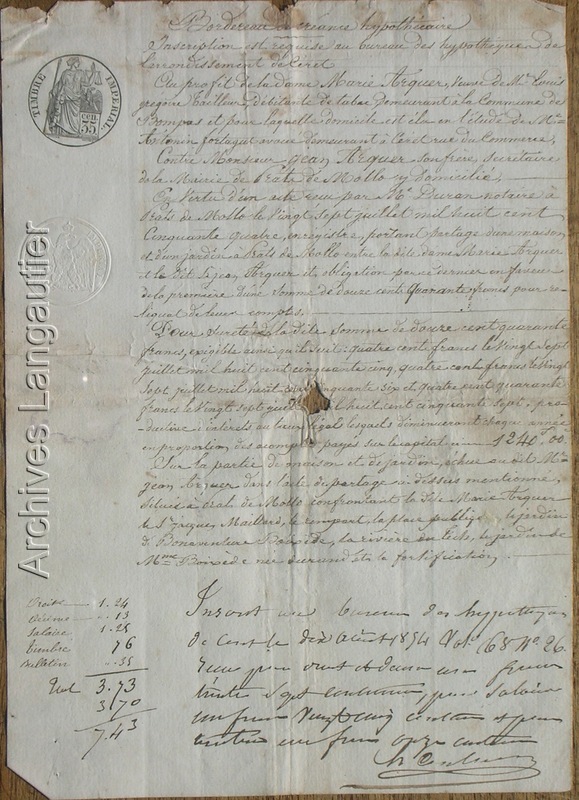 Bordereau de créance hypothécaire
Inscription est requise au bureau des hypothèques de
l'arrondissement de Ceret
Au profit de la dame Marie Arquer, veuve de Mr. Louis
débitante de tabac demeurant à la Commune de
Bompas et pour laquelle domicile est élu en l'étude de Me.
avoué demeurant à Ceret rue du Commerce,
Contre Monsieur Jean Arquer son frère, secrétaire
de la Mairie de Prats de Mollo y domicilié,
En vertu d'un acte reçu par Me. Duran notaire à
Prats de Mollo le vingt sept juillet mil huit cent
cinquante quatre, enregistré, portant partage d'une maison
et d'un jardin à Prats de Mollo entre la dite dame Marie Arquer
et le dit Sr. Jean Arquer et obligation par ce dernier en faveur
de la première d'une somme de douze cent quarante francs pour re-
liquat de leurs comptes.
Pour sûreté de la dite somme de douze cent quarante
francs, exigible ainsi qu'il suit: quatre cent francs le vingt sept
juillet mil huit cent cinquante cinq, quatre cent francs le vingt
sept juillet mil huit cent cinquante six et quatre cent quarante
francs le vingt sept huit cent cinquante sept, pro-
ductive d'intérêts au taux légal lesquels diminueront chaque année
en proportion des acomptes payés sur le capital 1240.00
Sur la partie de maison et de jardin échue au dit Mr.
Jean Arquer dans l'acte de partage ci dessus mentionné,
situés à Prats de Mollo confrontant la dite Marie Arquer
le Sr. Jacques Maillard, le rempart, la place publique, le jardin
de Bonaventure la rivière du Tech, le jardin de
Mme. Boixède née et la fortification.
TIMBRE IMPERIAL
35 cen.
Droits 1.24
Décime .13
Salaire 1.25
Timbre 76
Bulletin .35
Total 3.73
3.70
7.43
Inscrit au bureau des hypothèques
de Ceret le dix août 1854 Vol. 168 No. 26
Reçu pour droits et décime un franc
trente sept centimes, pour salaire
un franc vingt cinq centimes et pour
timbre un franc onze centimes
Archives Langautier